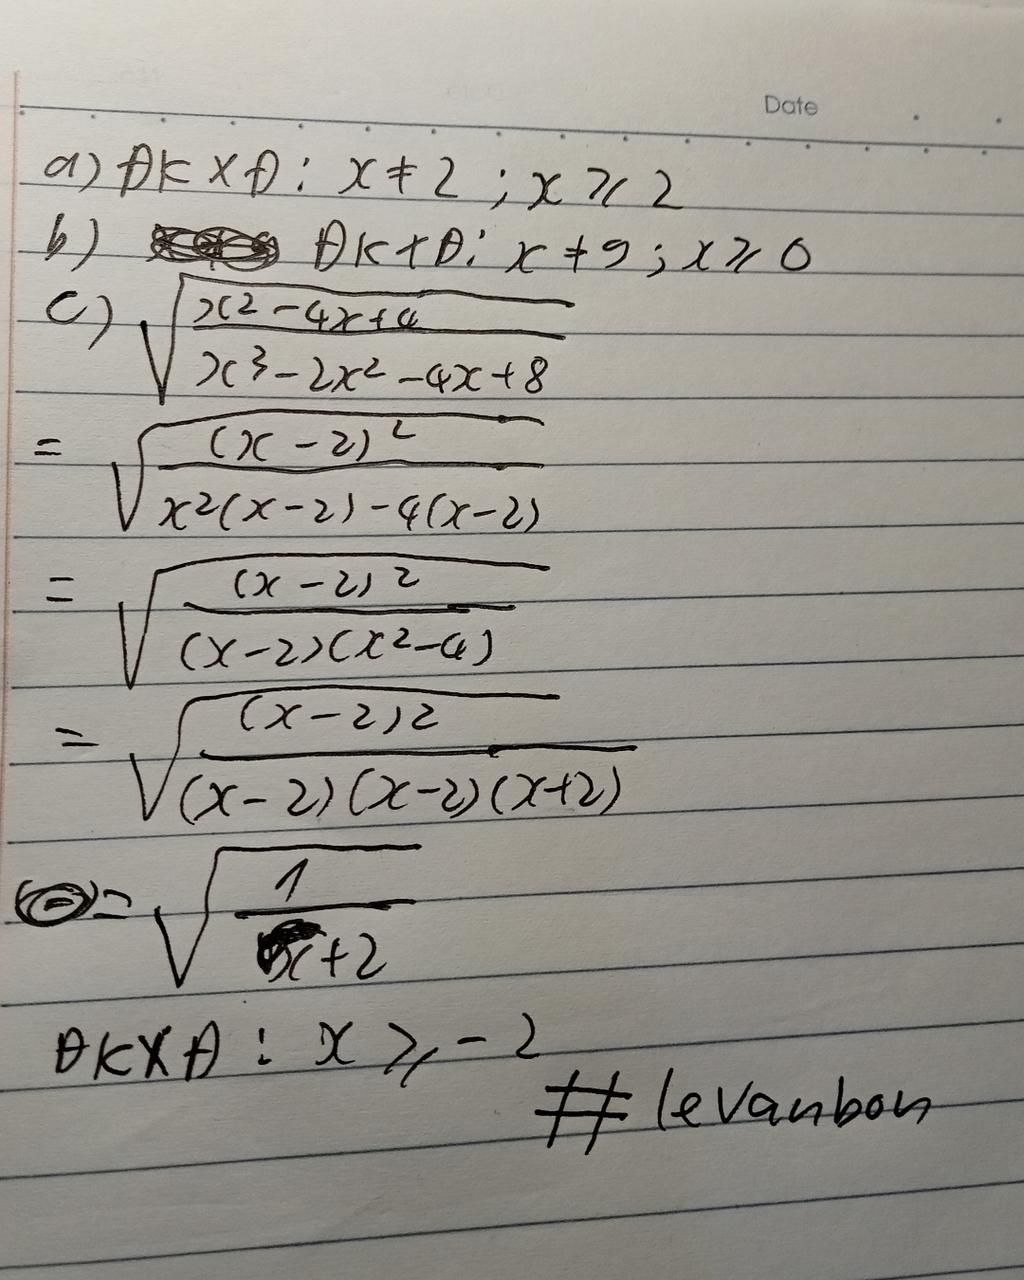 Date
a) ĐKXĐ: x ≠ 2 ; x ⩾ 2
b) ĐKXĐ: x ≠ 9 ; x ⩾ 0
c) √((x² - 4x + 4)/(x³ - 2x² - 4x + 8))
= √((x - 2)²/(x²(x - 2) - 4(x - 2)))
= √((x - 2)²/((x - 2)(x² - 4)))
= √((x - 2)²/((x - 2)(x - 2)(x + 2)))
= √(1/(x + 2))
ĐKXĐ : x ⩾ - 2
# levanbon